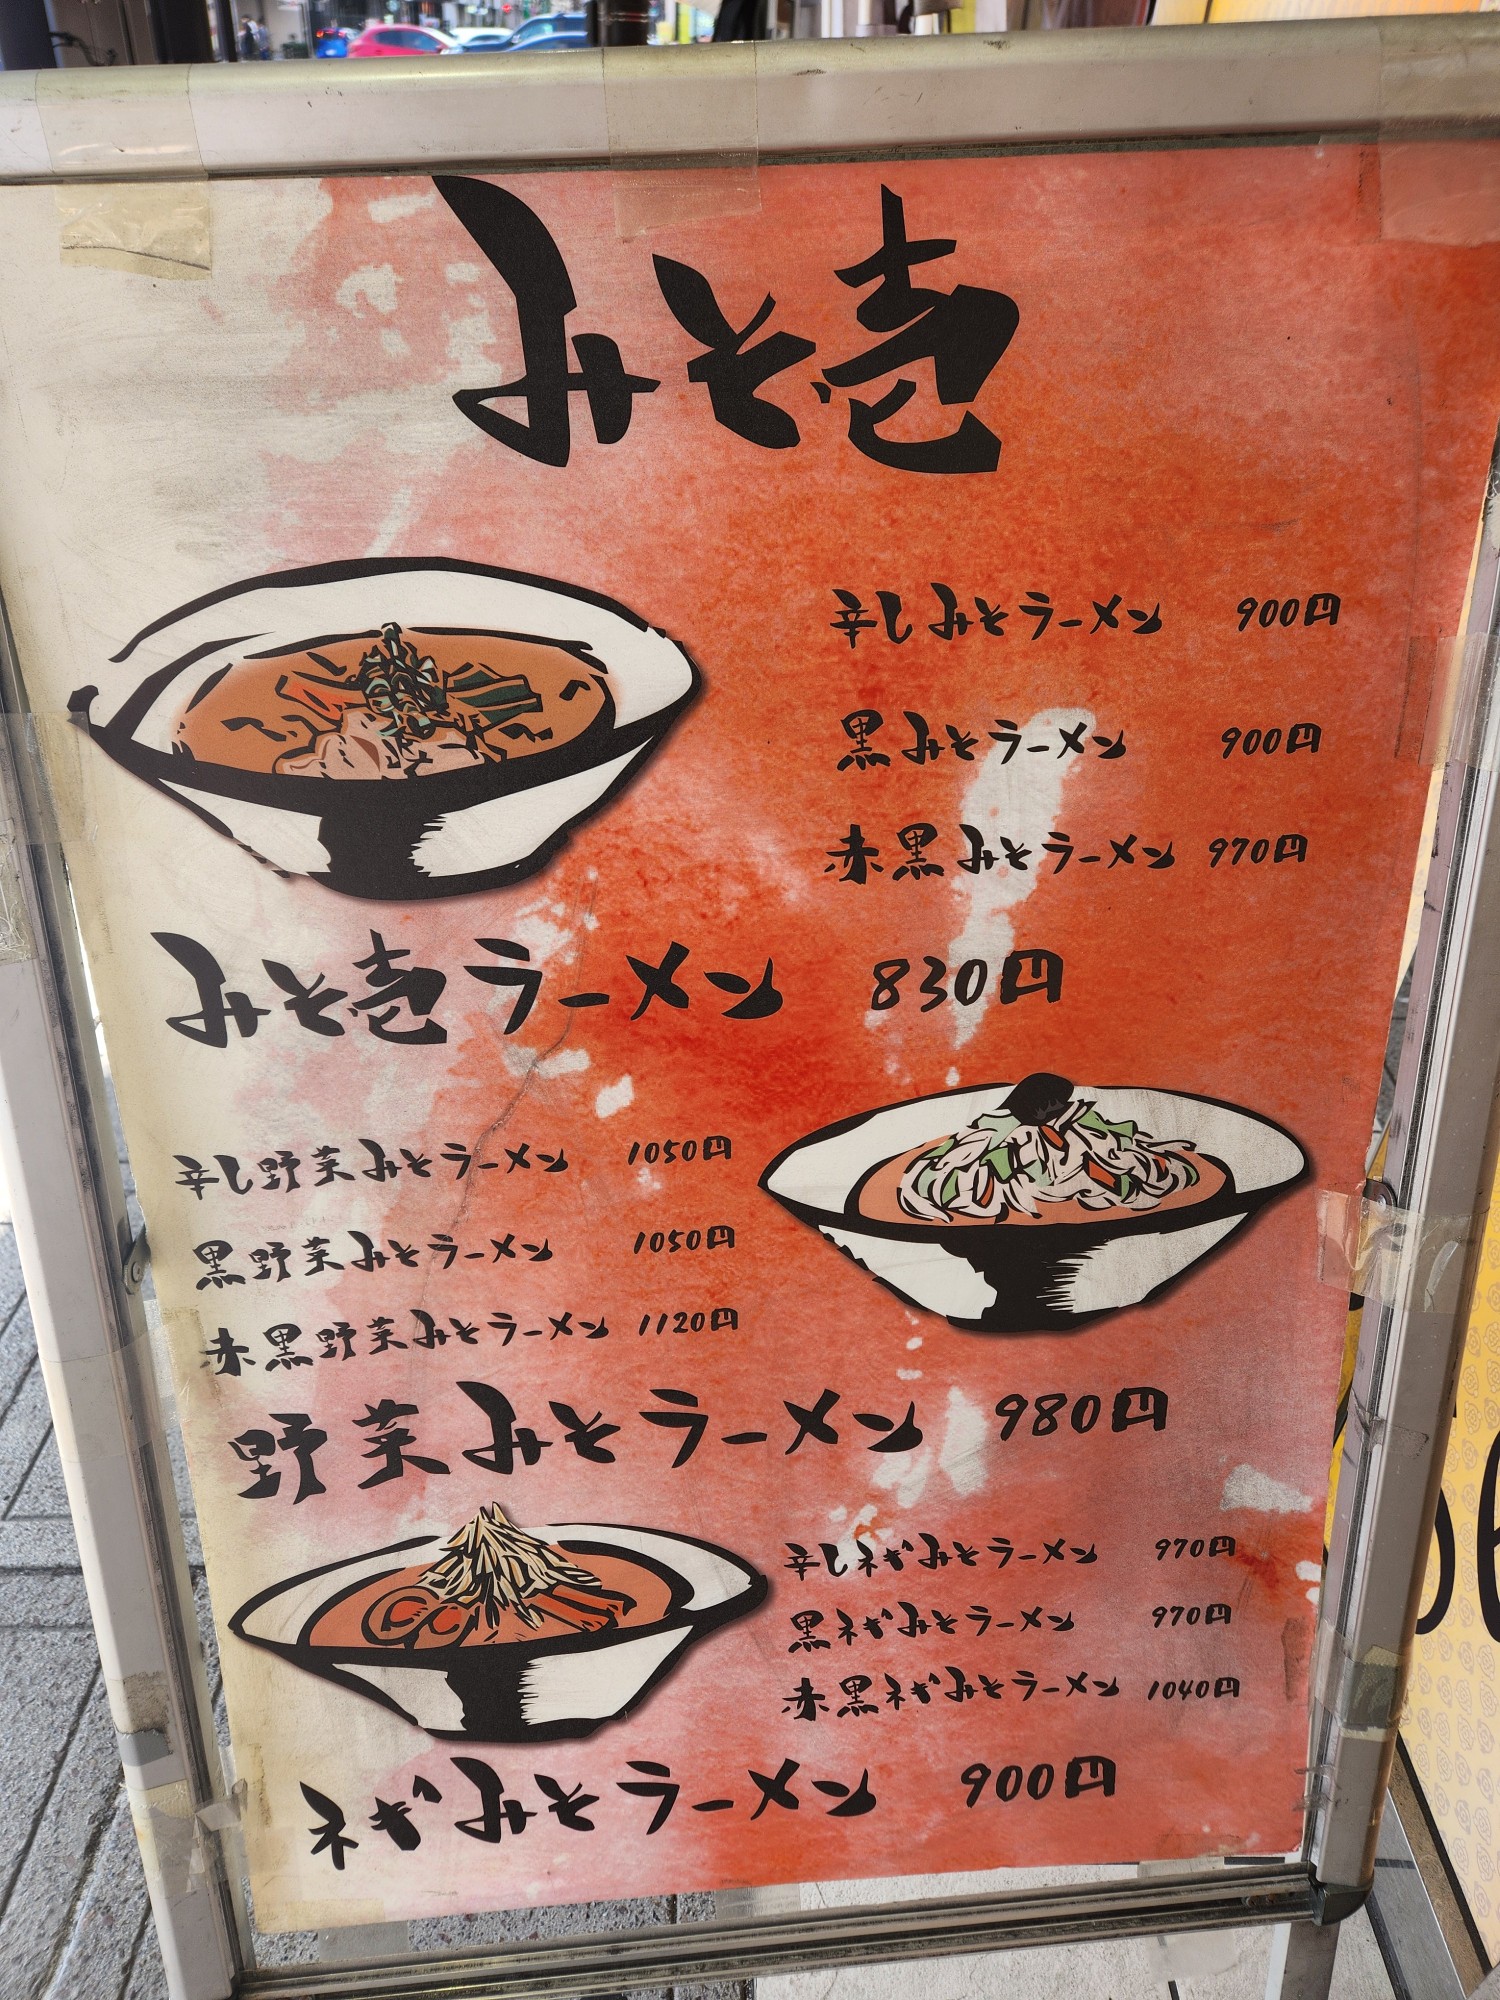 みそ壱
辛しみそラーメン 900円
黒みそラーメン 900円
赤黒みそラーメン 970円
みそ壱ラーメン 830円
辛し野菜みそラーメン 1050円
黒野菜みそラーメン 1050円
赤黒野菜みそラーメン 1120円
野菜みそラーメン 980円
辛しネギみそラーメン 970円
黒ネギみそラーメン 970円
赤黒ネギみそラーメン 1040円
ネギみそラーメン 900円